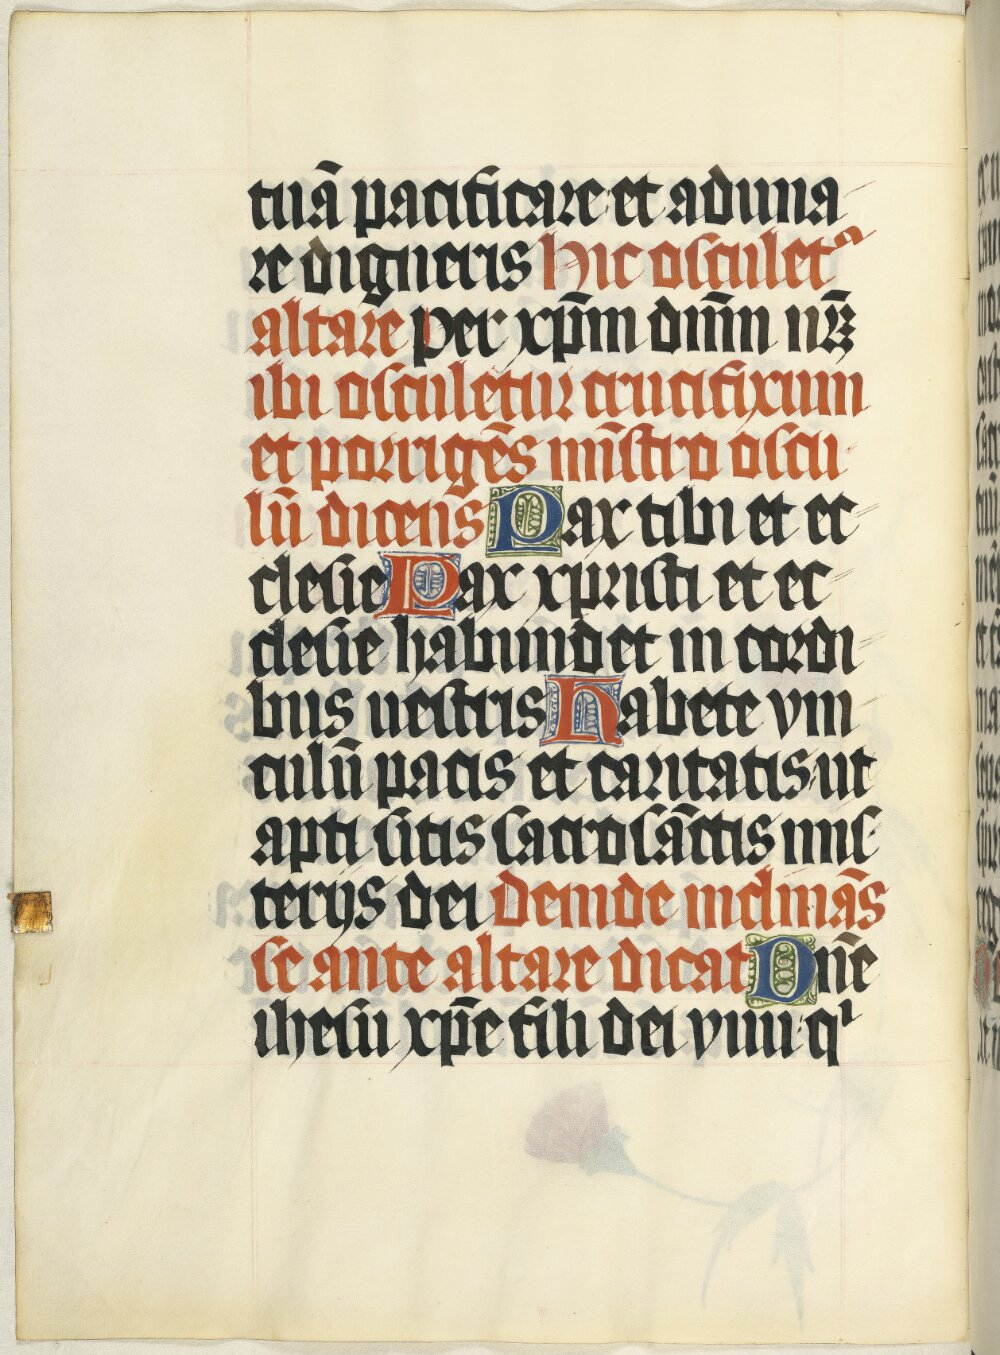 tuā pacificare et aduna
re digneris hic osculet᷑
altare per xp̄m dn̄m nr̄z
ibi osculetur crucifixum
et porrigēs mīstro oscu
lū dicens Pax tibi et ec
clesie Pax xpristi et ec
clesie habundet in cordi
bus uestris Habete vin
culū pacis et caritatis ut
apti sitis sacrosāctis mis
terijs dei Deinde inclinās
se ante altare dicat Dn̄e
ihesu xp̄e fili dei viui qⁱ